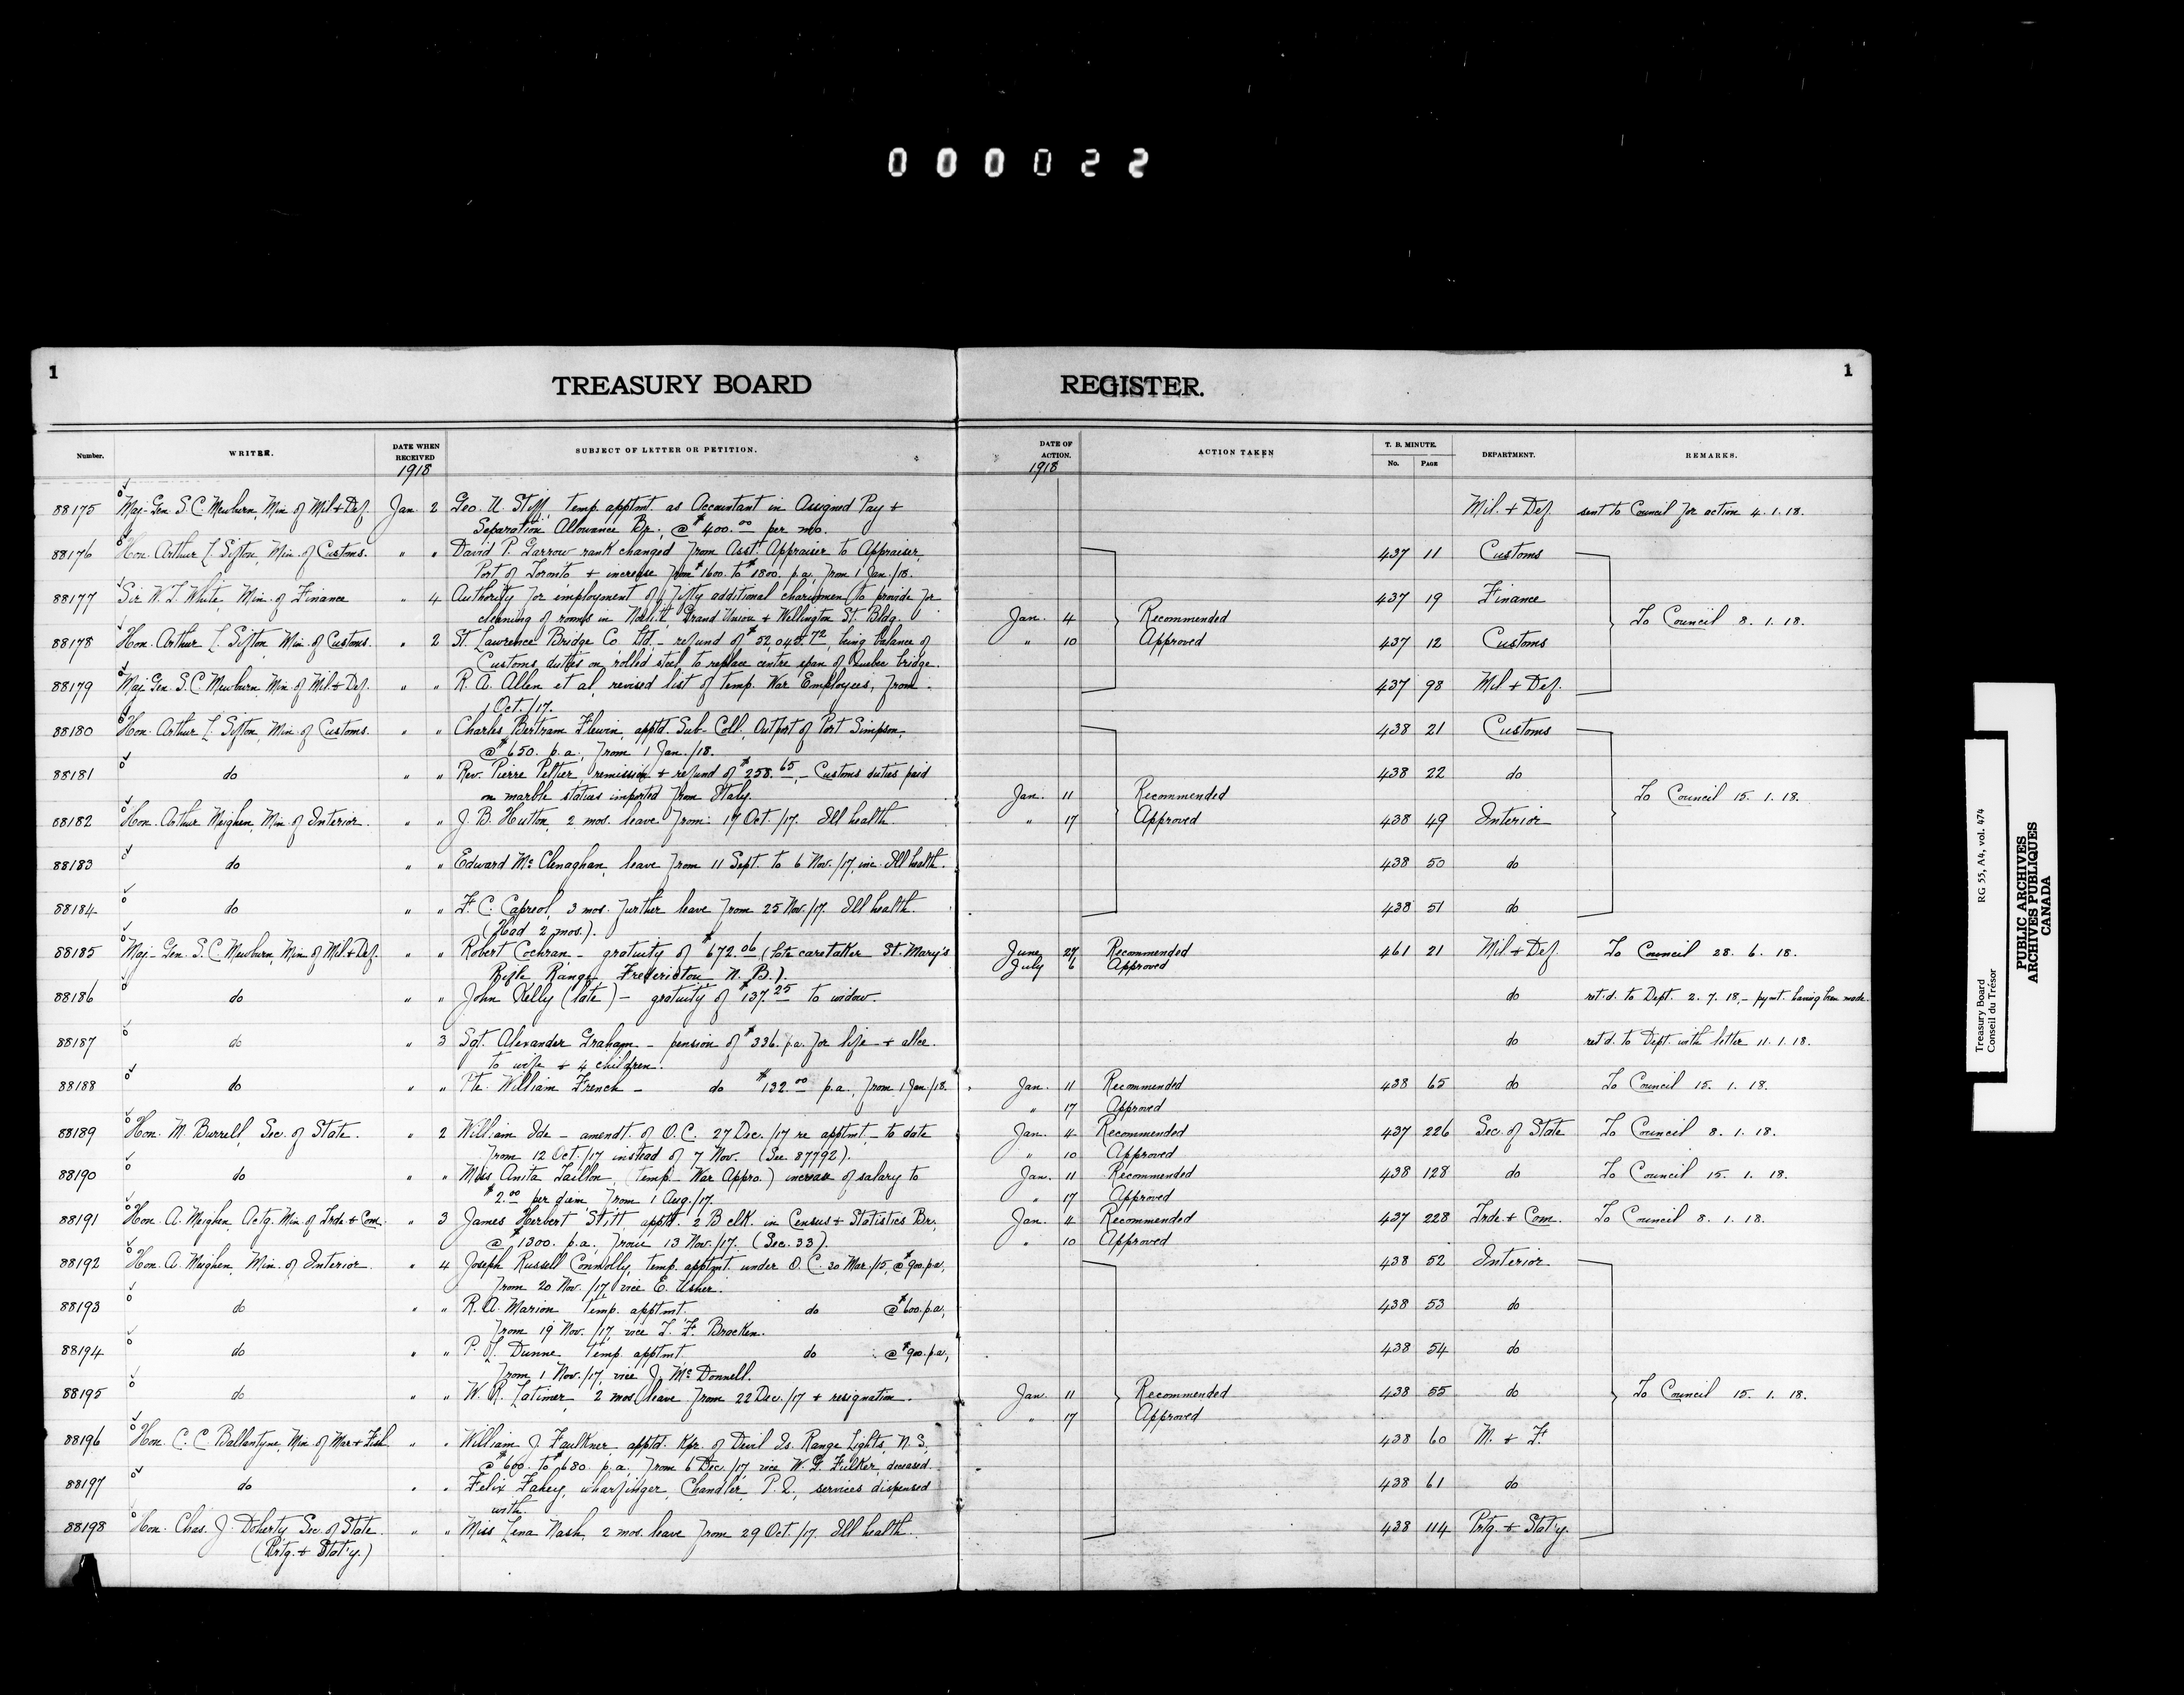 000022
1
TREASURY BOARD REGISTER.
1
Number. WRITER. DATE WHEN RECEIVED 1918 SUBJECT OF LETTER OR PETITION. DATE OF ACTION. 1918 ACTION TAKEN T. B. MINUTE. No. PAGE DEPARTMENT. REMARKS.
88175 Maj-Gen. S. C. Mewburn, Min. of Mil. + Def. Jan. 2 Geo. U. Stiff, temp. apptmt. as Accountant in Assigned Pay + Mil. + Def. sent to Council for action 4. 1. 18.
Separation Allowance Br., @ $400.00 per mo.
88176 Hon. Arthur L. Sifton, Min. of Customs. " " David P. Garrow rank changed from Asst. Appraiser to Appraiser, 437 11 Customs
Port of Toronto + increase from $1600. to $1800. p.a. from 1 Jan./18.
88177 Sir W. T. White, Min. of Finance " 4 Authority for employment of fifty additional charwomen to provide for 437 19 Finance
cleaning of rooms in Grand Union + Wellington St. Bldg. Jan. 4 Recommended To Council 8. 1. 18.
88178 Hon. Arthur L. Sifton, Min. of Customs. " 2 St. Lawrence Bridge Co. Ltd. - refund of $52,045.72, being balance of " 10 Approved 437 12 Customs
Customs duties on rolled steel to replace centre span of Quebec bridge.
88179 Maj. Gen. S. C. Mewburn, Min. of Mil. + Def. " " R. A. Allen et al, revised list of temp. War Employees, from 437 98 Mil. + Def.
1 Oct./17.
88180 Hon. Arthur L. Sifton, Min. of Customs. " " Charles Bertram Flewin, apptd. Sub-Coll., Outport of Port Simpson, 438 21 Customs
@ $650. p.a. from 1 Jan./18.
88181 do " " Rev. Pierre Peltier, remission + refund of $258.65, - Customs duties paid 438 22 do
on marble statues imported from Italy. Jan. 11 Recommended To Council 15. 1. 18.
88182 Hon. Arthur Meighen, Min. of Interior. " " J. B. Hutton, 2 mos. leave from 17 Oct./17. Ill health " 17 Approved 438 49 Interior
88183 do " " Edward McClenaghan, leave from 11 Sept. to 6 Nov./17, inc. Ill health. 438 50 do
88184 do " " F. C. Capreol, 3 mos. further leave from 25 Nov./17. Ill health. 438 51 do
(Had 2 mos.).
88185 Maj-Gen. S. C. Mewburn, Min. of Mil. + Def. " " Robert Cochran - gratuity of $672.06 (late caretaker St. Mary's June 27 Recommended 461 21 Mil. + Def. To Council 28. 6. 18.
Rifle Range Fredericton N. B.). July 6 Approved
88186 do " " John Kelly (late) - gratuity of $137.25 to widow. do ret'd. to Dept. 2. 7. 18, - pymt. having been made.
88187 do " 3 Sgt. Alexander Graham - pension of $336. p.a. for life + allce. do ret'd. to Dept. with letter 11. 1. 18.
to wife + 4 children.
88188 do " " Pte. William French - do $132.00 p.a. from 1 Jan./18. Jan. 11 Recommended 438 65 do To Council 15. 1. 18.
" 17 Approved
88189 Hon. M. Burrell, Sec. of State. " 2 William Ide - amendt. of O.C. 27 Dec./17 re apptmt. - to date Jan. 4 Recommended 437 226 Sec. of State To Council 8. 1. 18.
from 12 Oct./17 instead of 7 Nov. (See 87792). " 10 Approved
88190 do " " Miss Anita Taillon (temp - War Appro.) increase of salary to Jan. 11 Recommended 438 128 do To Council 15. 1. 18.
$2.00 per diem from 1 Aug./17. " 17 Approved
88191 Hon. A. Meighen, Actg. Min. of Trde. + Com. " 3 James Herbert Stitt, apptd. 2 B clk. in Census + Statistics Br., Jan. 4 Recommended 437 228 Trde. + Com. To Council 8. 1. 18.
@ $1300. p.a. from 13 Nov./17. (Sec. 33). " 10 Approved
88192 Hon. A. Meighen, Min. of Interior. " 4 Joseph Russell Connolly, temp. apptmt. under O.C. 30 Mar./15, @ $900. p.a., 438 52 Interior
from 20 Nov./17 vice E. Usher.
88193 do " " R. A. Marion temp. apptmt. do @ $600. p.a., 438 53 do
from 19 Nov./17, vice T. F. Bracken.
88194 do " " P. J. Dunne temp. apptmt. do @ $900. p.a., 438 54 do
from 1 Nov./17, vice J. McDonnell.
88195 do " " W. R. Latimer, 2 mos. leave from 22 Dec./17 + resignation. Jan. 11 Recommended 438 55 do To Council 15. 1. 18.
" 17 Approved
88196 Hon. C. C. Ballantyne, Min. of Mar. + Fish. " " William J. Faulkner, apptd. Kpr. of Devil Is. Range Lights, N. S., 438 60 M. + F.
@ $600. to $680. p.a. from 6 Dec./17, vice W. F. Fulker, deceased.
88197 do " " Felix Fahey, wharfinger, Chandler, P. Q., services dispensed 438 61 do
with
88198 Hon. Chas. J. Doherty Sec. of State " " Miss Lena Nash, 2 mos. leave from 29 Oct./17. Ill health. 438 114 Prtg. + Stat'y.
(Prtg. + Stat'y.)
Treasury Board RG 55, A4, vol. 474
Conseil du Trésor
PUBLIC ARCHIVES
ARCHIVES PUBLIQUES
CANADA